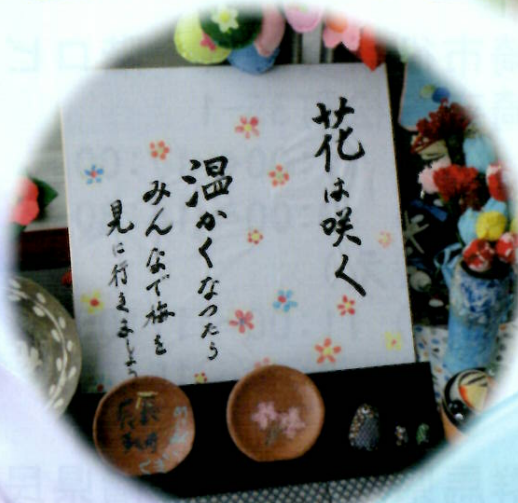 花は咲く
温かくなったら
みんなで梅を
見に行きましょう